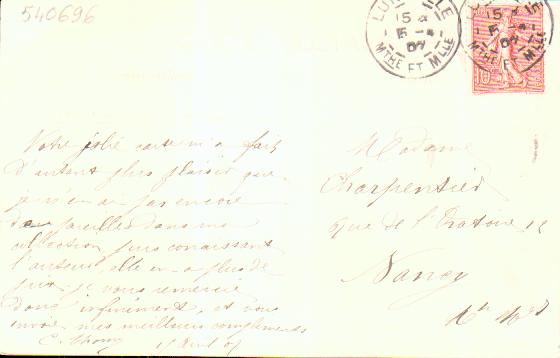 540696
LU VILLE
15
5
MTHE ET MLLE
15
MTHE ET MLLE
10
Votre jolie carte m'a fait
D'autant plus plaisir que
je n'en ai pas encore
de pareilles dans ma
collection, puis connaissant
l'auteur, elle en a plus de
prix. je vous remercie
donc infiniment, et vous
envoie mes meilleurs compliments
C.
Madame
Charpentier
rue de l'Oratoire
Nancy